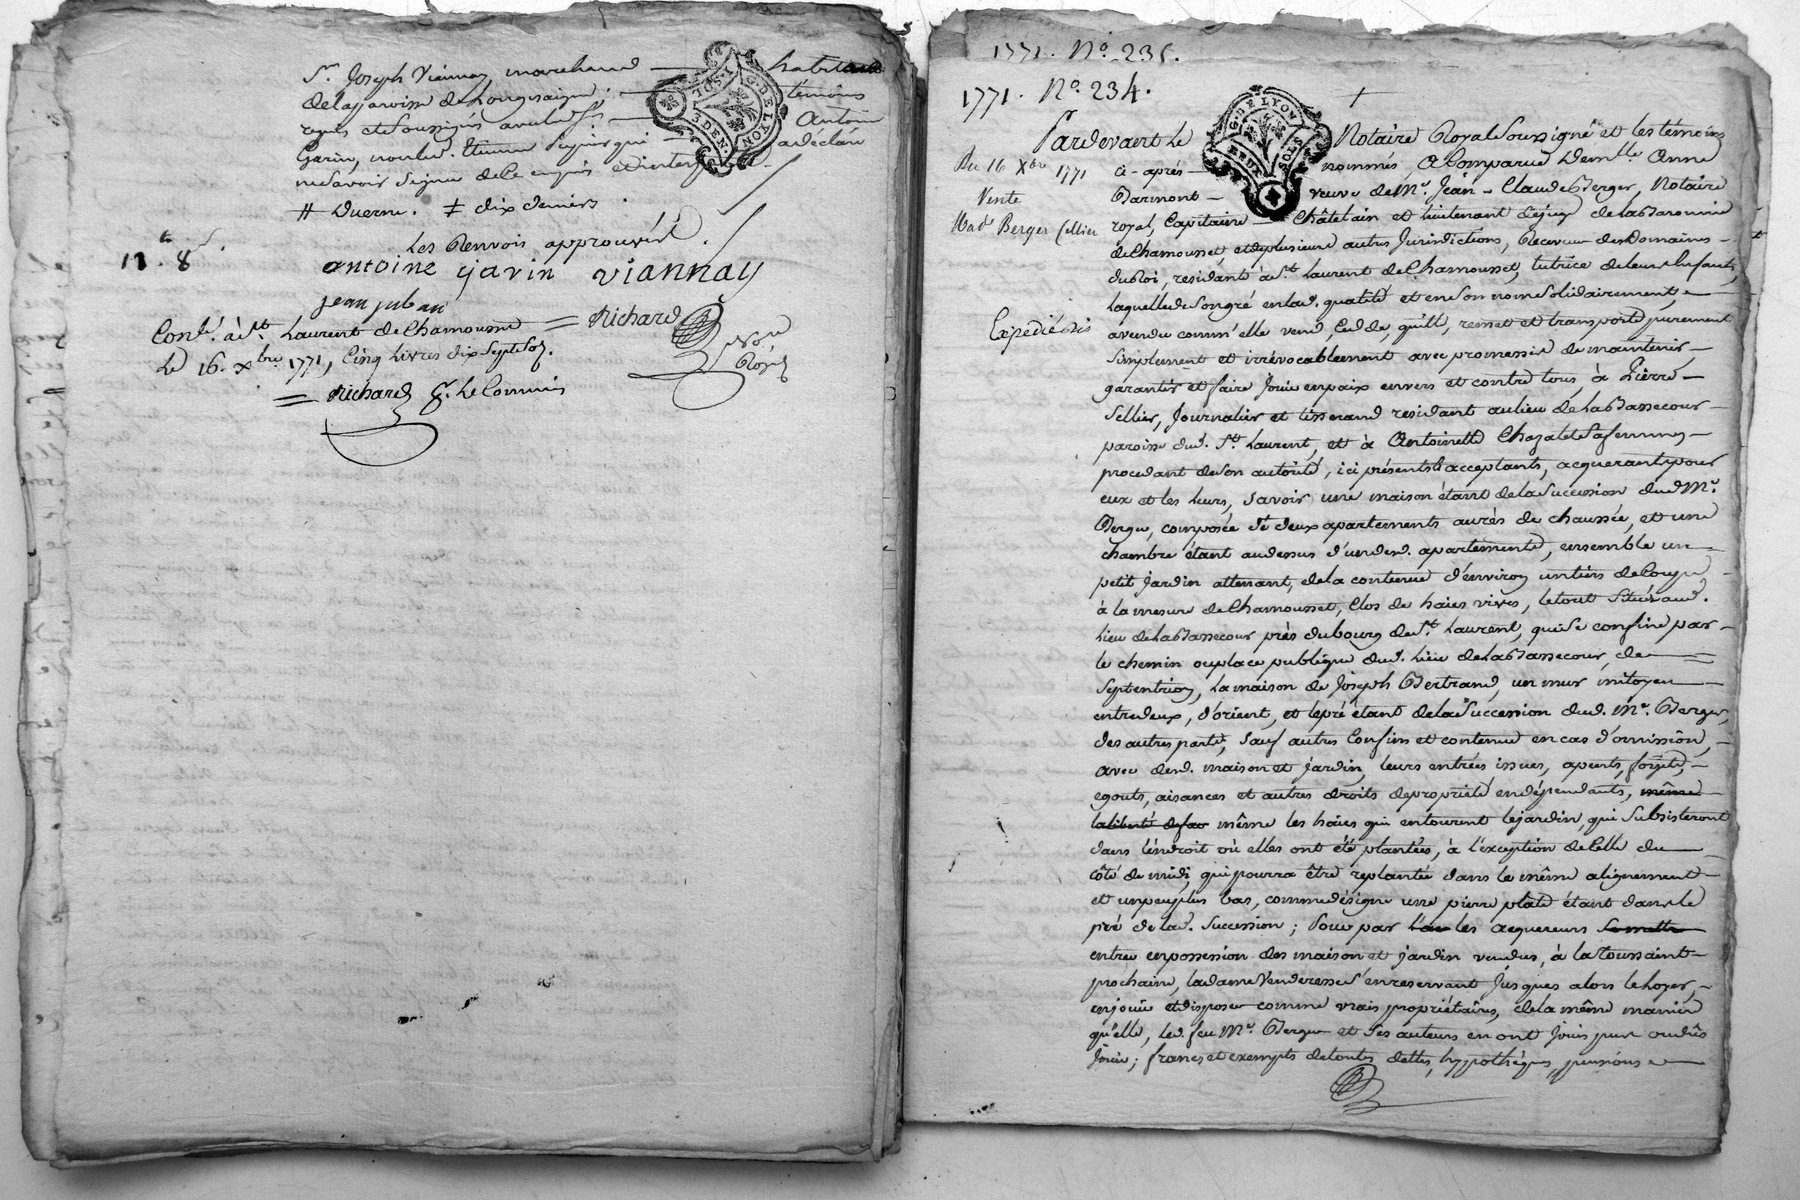 Sr. Joseph Viannay, marchand — habitans
de la paroisse de Longesaigne; — témoins
requis et Soussignés avec led. Sr. — Antoine
Garin, non led. Etienne Dupin qui — a déclaré
ne Savoir Signer de ce enquis et interpellé.
# Duerne. ‡ dix deniers.
Les Renvois approuvés.
12. 8s.
antoine garin viannay
jean juban
= Richard
Nore Royal
Contlé. à St. Laurent de Chamousset
Le 16. Xbre 1771, Cinq Livres dix Sept Sols.
= Richard p. le Commis
G. DE LYON
2. SOLS
3 DEN.
1771. No. 235.
1771. No. 234.
G. DE LYON
DEUX SOLS
Pardevant Le Notaire Royal Soussigné et les témoins
Du 16 Xbre 1771
ci-après — nommés, a Comparue Demlle. Anne
Vente
Barmont — veuve de Me. Jean-Claude Berger, Notaire
Mad Berger Cellier
royal, Capitaine — Châtelain et Lieutenant de juge de la Baronnie
de Chamousset, et de plusieurs autres Jurisdictions, Receveur des Domaines —
du Roi, residante à St. Laurent de Chamousset, tutrice de leurs Enfants,
laquelle de Son gré en lad. qualité et en Son nom Solidairement, —
Expédié bis
a vendu comm'elle vend, Cede, quitte, remet et transporte purement
Simplement et irrévocablement avec promesse de maintenir —
garantir et faire Jouir en paix envers et contre tous, à Pierre —
Sellier, Journalier et tisserand residant au lieu de La Bassecour —
paroisse dud. St. Laurent, et à Antoinette Chazalet Sa femme —
procedant de Son autorité, ici présents & acceptants, acquerants pour
eux et les leurs, Savoir une maison étant de la Succession dud. Me.
Berger, composée de deux apartements au rès de chaussée, et une
chambre étant au dessus d'un desd. apartements, ensemble un —
petit jardin attenant, de la contenue d'environ un tiers de Coupe, —
à la mesure de Chamousset, Clos de haies vives, le tout Situé aud.
Lieu de La Bassecour près du bourg de St. Laurent, qui Se confine par —
le chemin ou place publique dud. Lieu de La Bassecour, de —
Septentrion, La maison de Joseph Bertrand, un mur mitoyen —
entre deux, d'orient, et le pré étant de la Succession dud. Me. Berger,
des autres parts, Sauf autres Confins et contenue en cas d'omission, —
avec desd. maison et jardin, leurs entrées issues,
egouts, aisances et autres droits de propriété en dépendants, même
la liberté de même les haïes qui entourent le jardin, qui Subsisteront
dans l'endroit où elles ont été plantées, à l'exception de Celle du —
côté de midi, qui pourra être replantée dans le même alignement —
et un peu plus bas, comme désigne une pierre plate étant dans le
pré de lad. Succession; Pour par les acquereurs Se mettre
entrer en possession des maison et jardin vendus, à la Toussaint —
prochaine, la dame Venderesse S'en reservant Jusques alors le loyer, —
en jouir et disposer comme vrais propriétaires, de la même manière
qu'elle, led. feu Me. Berger et Ses auteurs en ont Joui pu ou dûs
Jouir; francs et exempts de toutes dettes, hypothèques, pensions et —